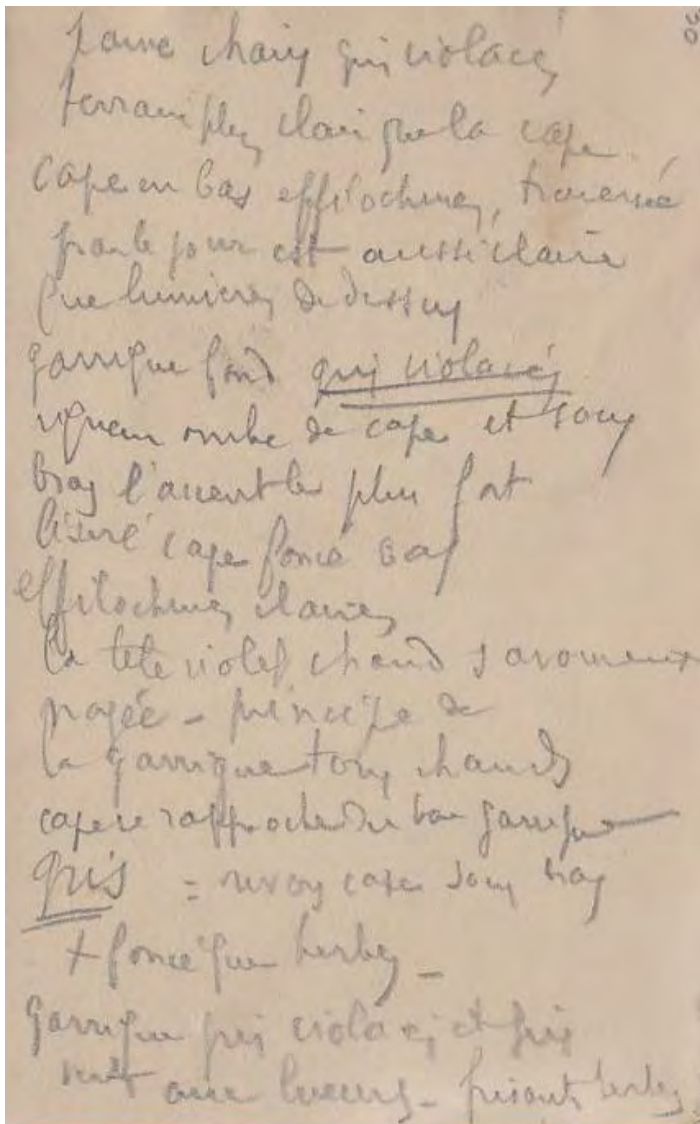 terrain plus clair que la cape
cape en bas effilochures, traversée
par le jour est aussi claire
que lumières de dessus
garrigue fond gris violacés
vigueur ombre de cape et sous
bras l'accent le plus fort
liseré cape foncé bas
effilochures claires
la tête violet chaud savoureux
noyée - principe de
la garrigue tons chauds
cape se rapproche du ton garrigue
gris = revers cape sous bras
+ foncé que herbes -
garrigue gris violacés et gris
vert aux lueurs - frisants herbes